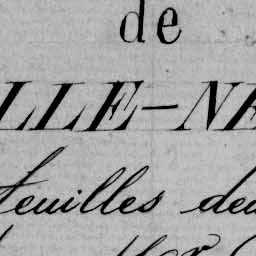 de
LLE-NE
feuilles deu